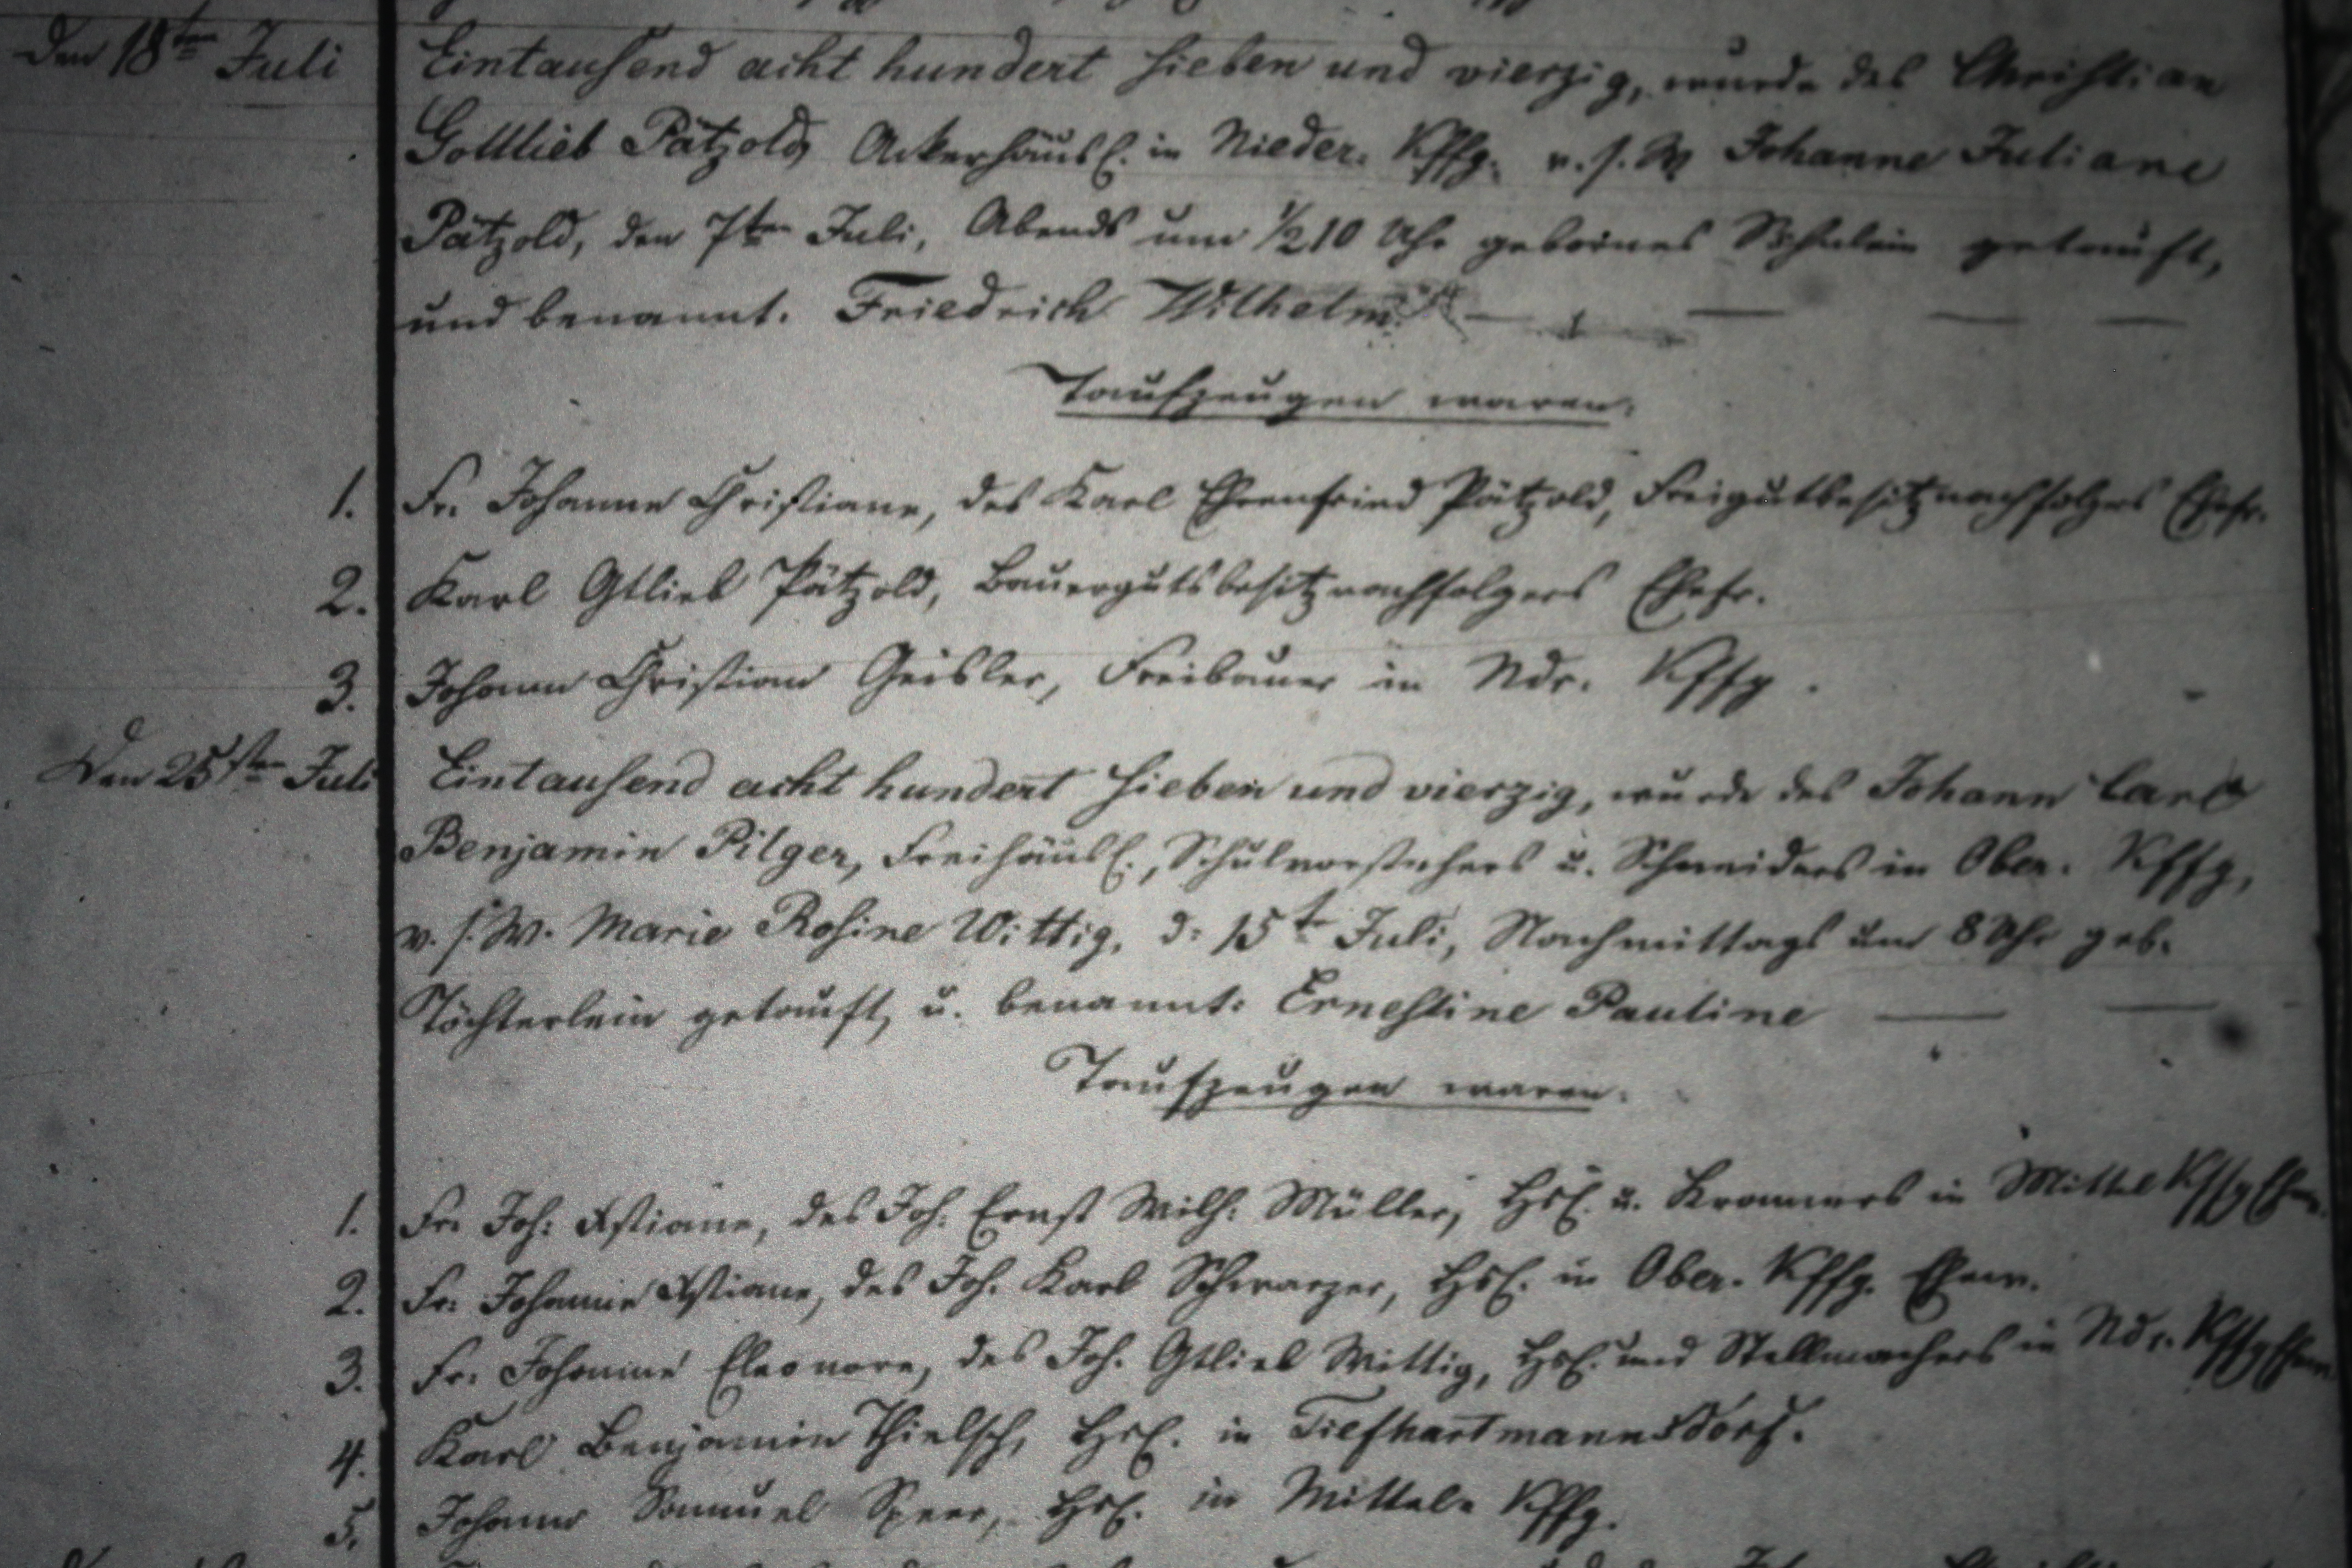 Den 18ten Juli Eintausend acht hundert sieben und vierzig, wurde des Christian
Gottlieb Pätzold, Ackerhäusl. in Nieder. Kffg. v. s. W Johanne Juliane
Pätzold, den 7ten Juli, Abends um 1/2 10 Uhr gebornes Söhnlein getauft,
und benannt. Friedrich Wilhelm.
Taufzeugen waren.
1. Fr. Johanne Christiane, des Karl Ehrenfried Pätzold, Freigutbesitznachfolgers Ehefr.
2. Karl Gtlieb Pätzold, Bauergutsbesitznachfolgers Ehefr.
3. Johann Christian Geisler, Freibauer in Ndr. Kffg.
Den 25sten Juli Eintausend acht hundert sieben und vierzig, wurde des Johann Carl
Benjamin Pilger, Freihäusl., Schulvorstehers u. Schneiders in Ober. Kffg,
v. s. W. Marie Rosine Wittig, d: 15t Juli, Nachmittags um 8 Uhr geb.
Töchterlein getauft, u. benannt: Ernestine Pauline
Taufzeugen waren.
1. Fr. Joh: Xstiane, des Joh. Ernst Wilh: Müller, Hsl. u. Kramers in Mittel Kffg
2. Fr. Johanne Xstiane, des Joh. Karl Schwarzer, Hsl. in Ober. Kffg. Ehew.
3. Fr. Johanne Eleonore, des Joh. Gtlieb Wittig, Hsl. und Stellmachers in Ndr. Kffg
4. Karl Benjamin Thielsch, Hsl. in Tiefhartmannsdorf.
5. Johann Samuel Speer, Hsl. in Mittel. Kffg.